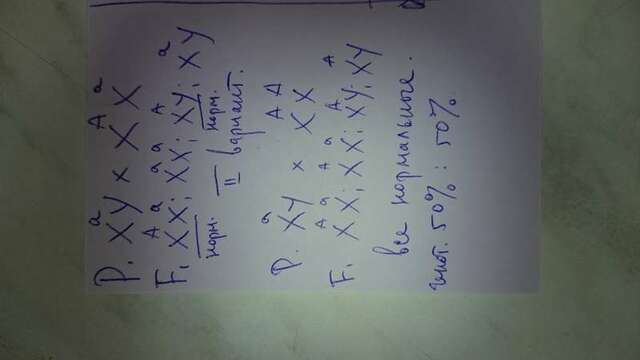 P. XᵃY × XᴬXᵃ
F₁ XᴬXᵃ; XᵃXᵃ; XᴬY; XᵃY
норм. норм.
II вариант.
P. XᵃY × XᴬXᴬ
F₁ XᴬXᵃ; XᴬXᵃ; XᴬY; XᴬY
все нормальные.
50% : 50%